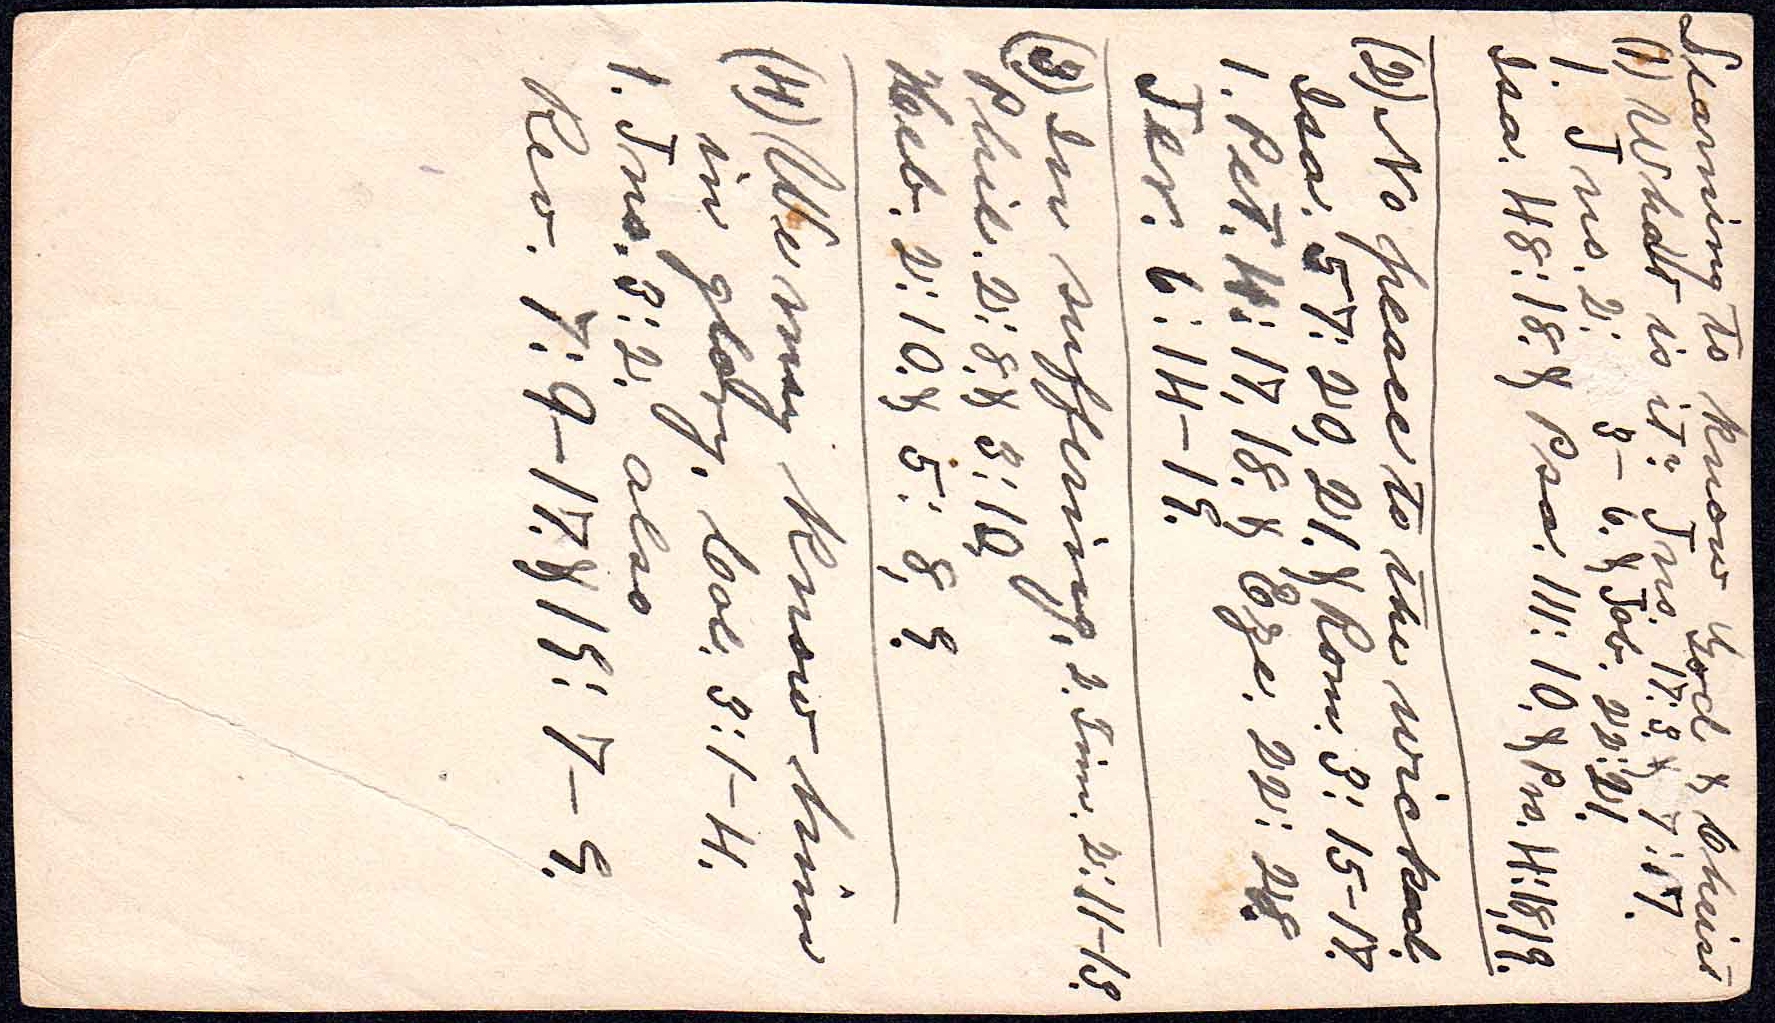 Learning to know God & Christ
(1) What is it? Jns. 17:3. & 7:17.
1. Jns. 2: 3-6. & Job. 22:21.
Isa. 48:18. & Psa. 111:10. & Pn. 4:18,19.
(2) No peace to the wicked.
Isa. 57:20,21. & Rom. 3:15-17.
1. Pet. 4:17,18. & Eze. 22:28.
Jer. 6:14-19.
(3) In suffering, 2. Tim. 2:11-13.
Phil. 2:8. & 3:10,
Heb. 2:10. & 5:8,9.
(4) We may know him
in glory. Col. 3:1-4.
1. Jns. 3:2. also
Rev. 7:9-17. & 19:7-9.